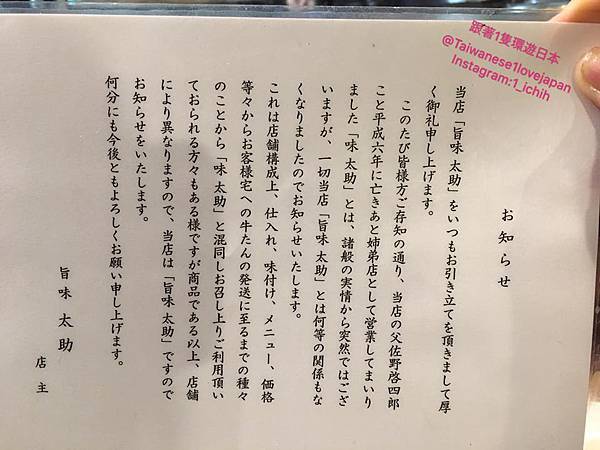 跟著1隻環遊日本
@Taiwanese1lovejapan
Instagram:1_ichih
お知らせ
当店「旨味 太助」をいつもお引き立てを頂きまして厚
く御礼申し上げます。
このたび皆様方ご存知の通り、当店の父佐野啓四郎
こと平成六年に亡きあと姉弟店として営業してまいり
ました「味 太助」とは、諸般の実情から突然ではござ
いますが、一切当店「旨味 太助」とは何等の関係もな
くなりましたのでお知らせいたします。
これは店舗構成上、仕入れ、味付け、メニュー、価格
等々からお客様宅への牛たんの発送に至るまでの種々
のことから「味 太助」と混同しお召し上りご利用頂い
ておられる方々もある様ですが商品である以上、店舗
により異なりますので、当店は「旨味 太助」ですので
お知らせをいたします。
何分にも今後ともよろしくお願い申し上げます。
旨味 太助
店主